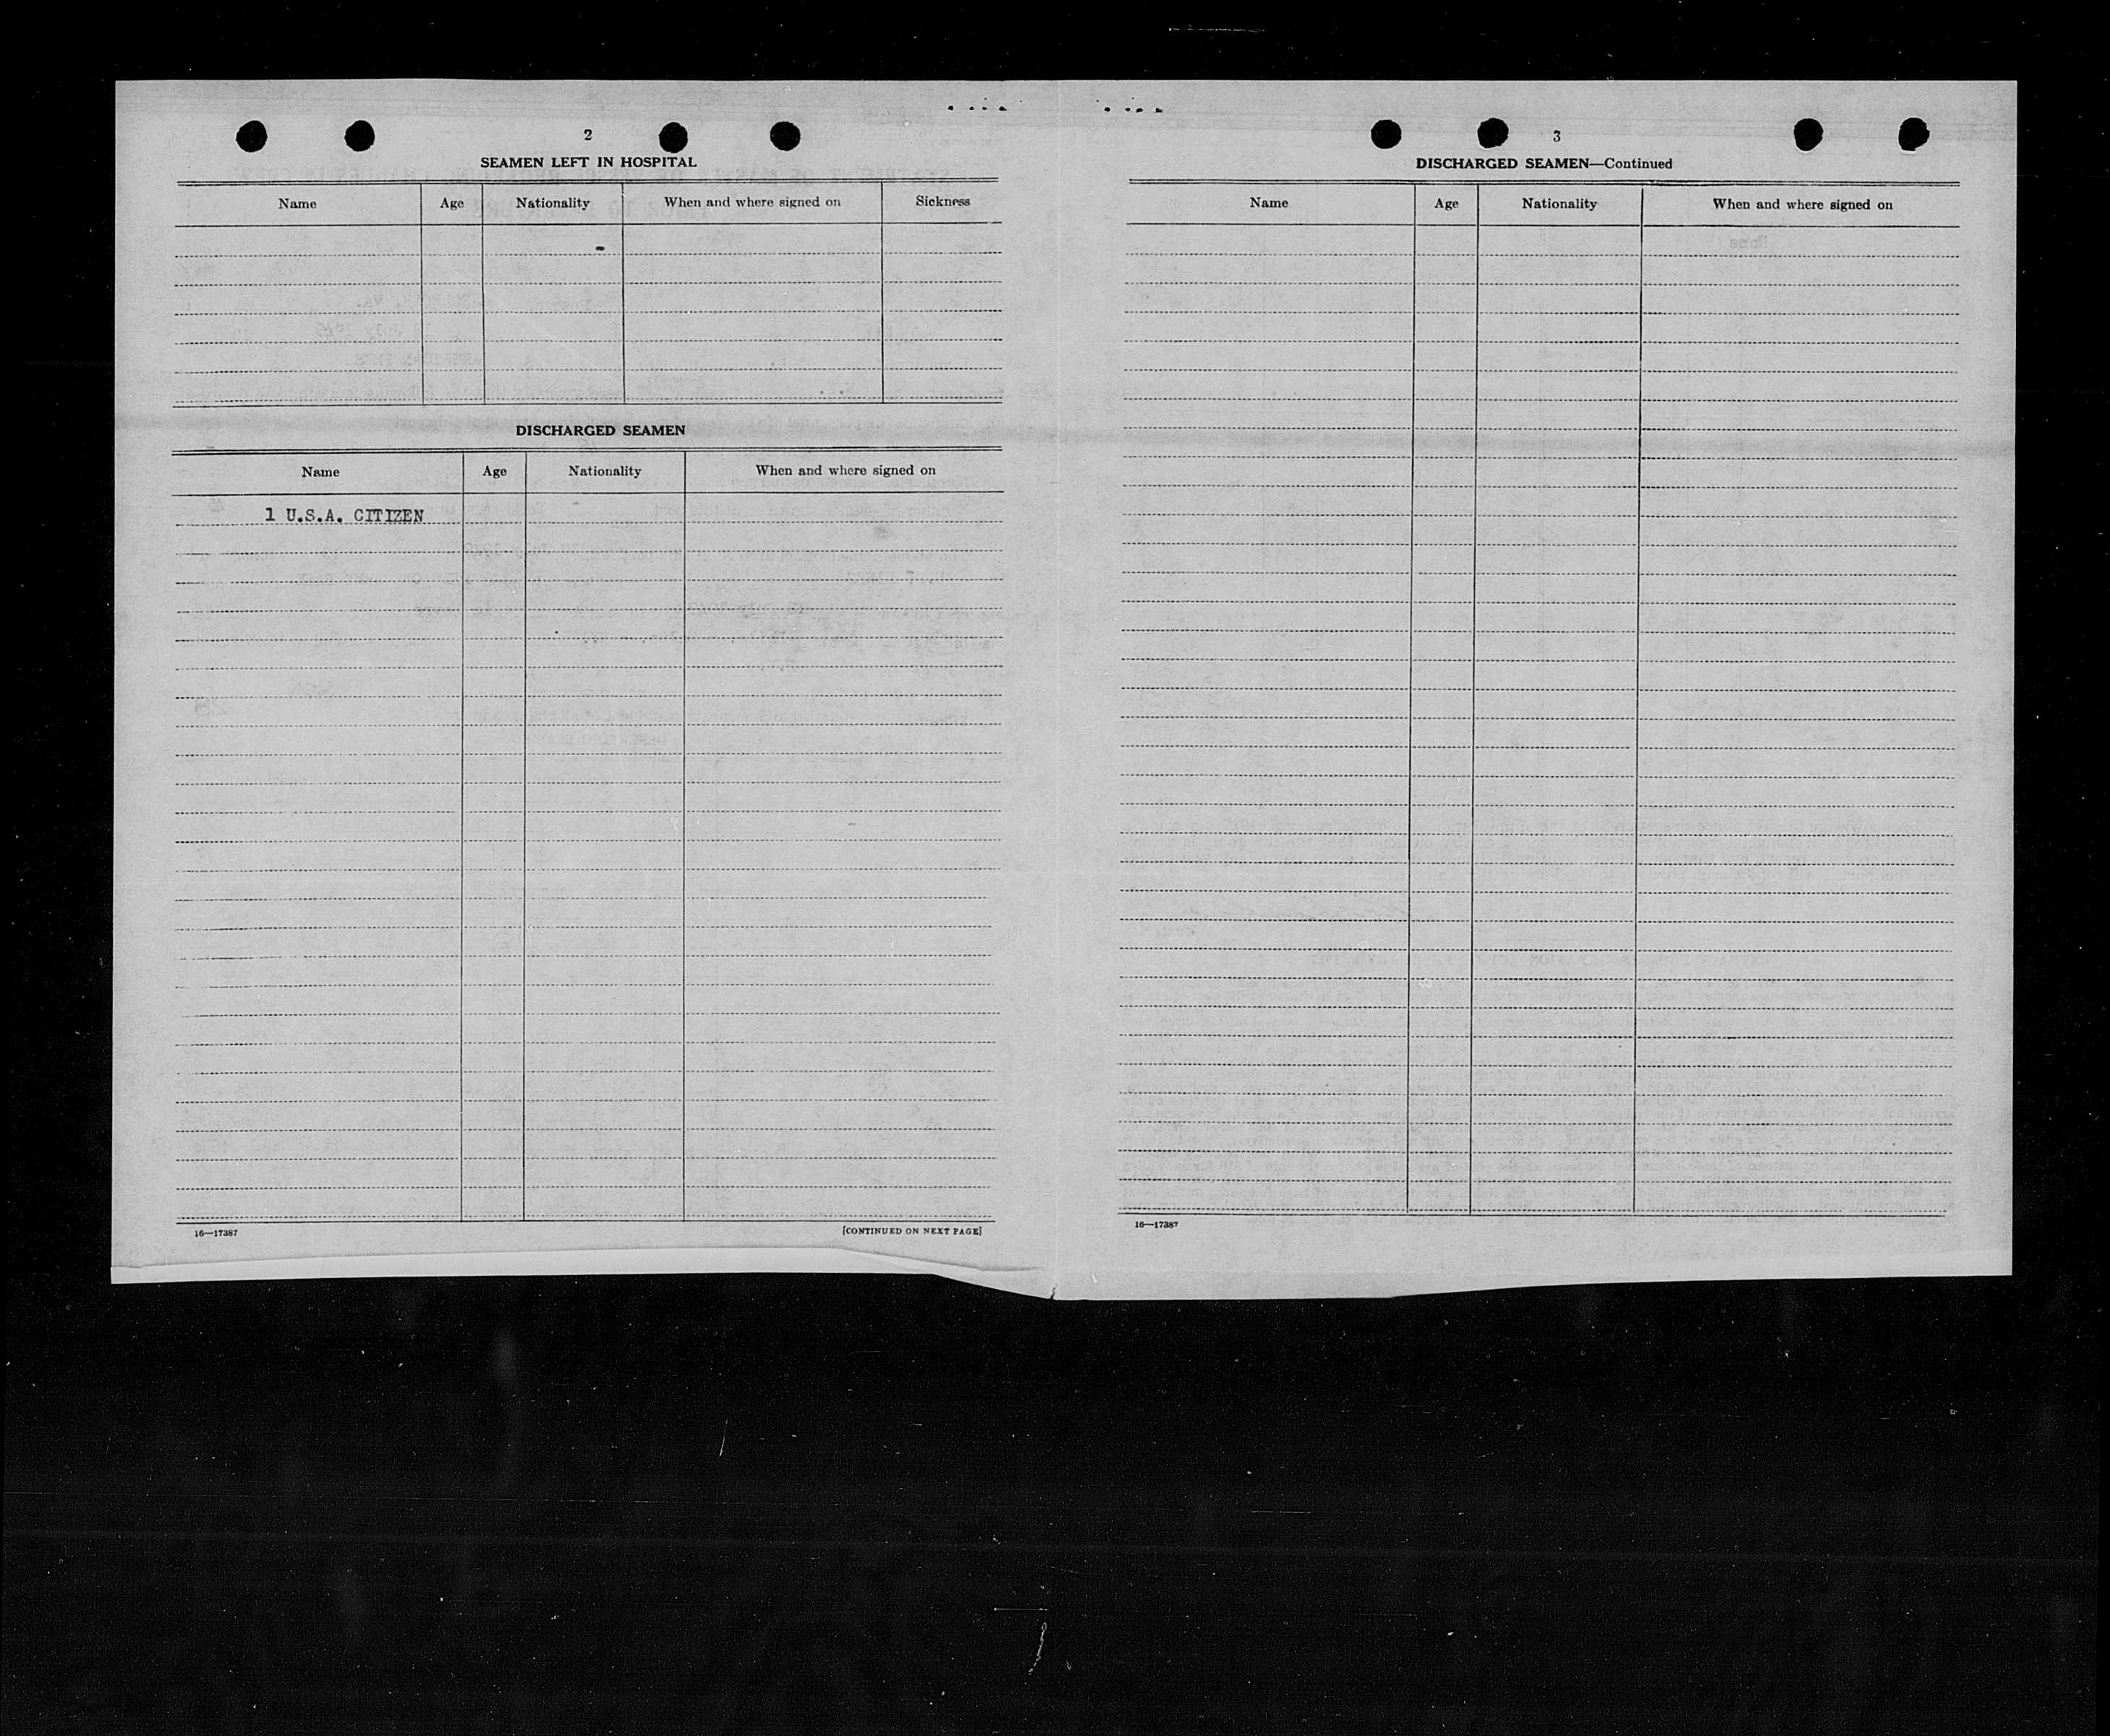 2
SEAMEN LEFT IN HOSPITAL
Name Age Nationality When and where signed on Sickness
DISCHARGED SEAMEN
Name Age Nationality When and where signed on
1 U.S.A. CITIZEN
16—17387 [CONTINUED ON NEXT PAGE]
3
DISCHARGED SEAMEN—Continued
Name Age Nationality When and where signed on
16—17387